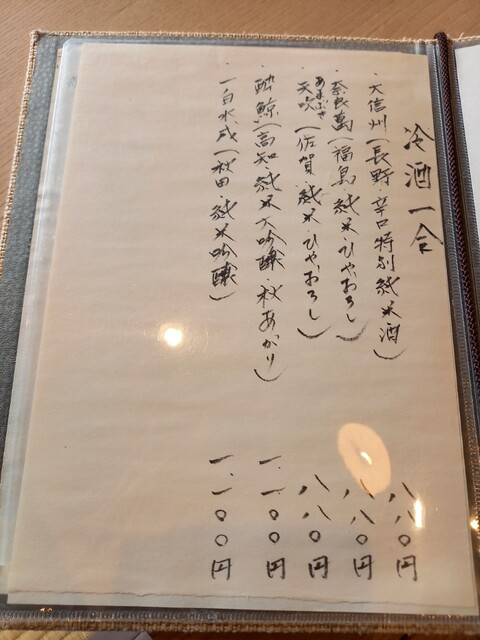 冷酒一合
・大信州(長野・辛口特別純米酒) 八八〇円
・奈良萬(福島・純米・ひやおろし) 八八〇円
あまぶき
・天吹(佐賀・純米・ひやおろし) 八八〇円
・酔鯨(高知・純米大吟醸・秋あがり) 一、一〇〇円
・一白水成(秋田・純米吟醸) 一、一〇〇円